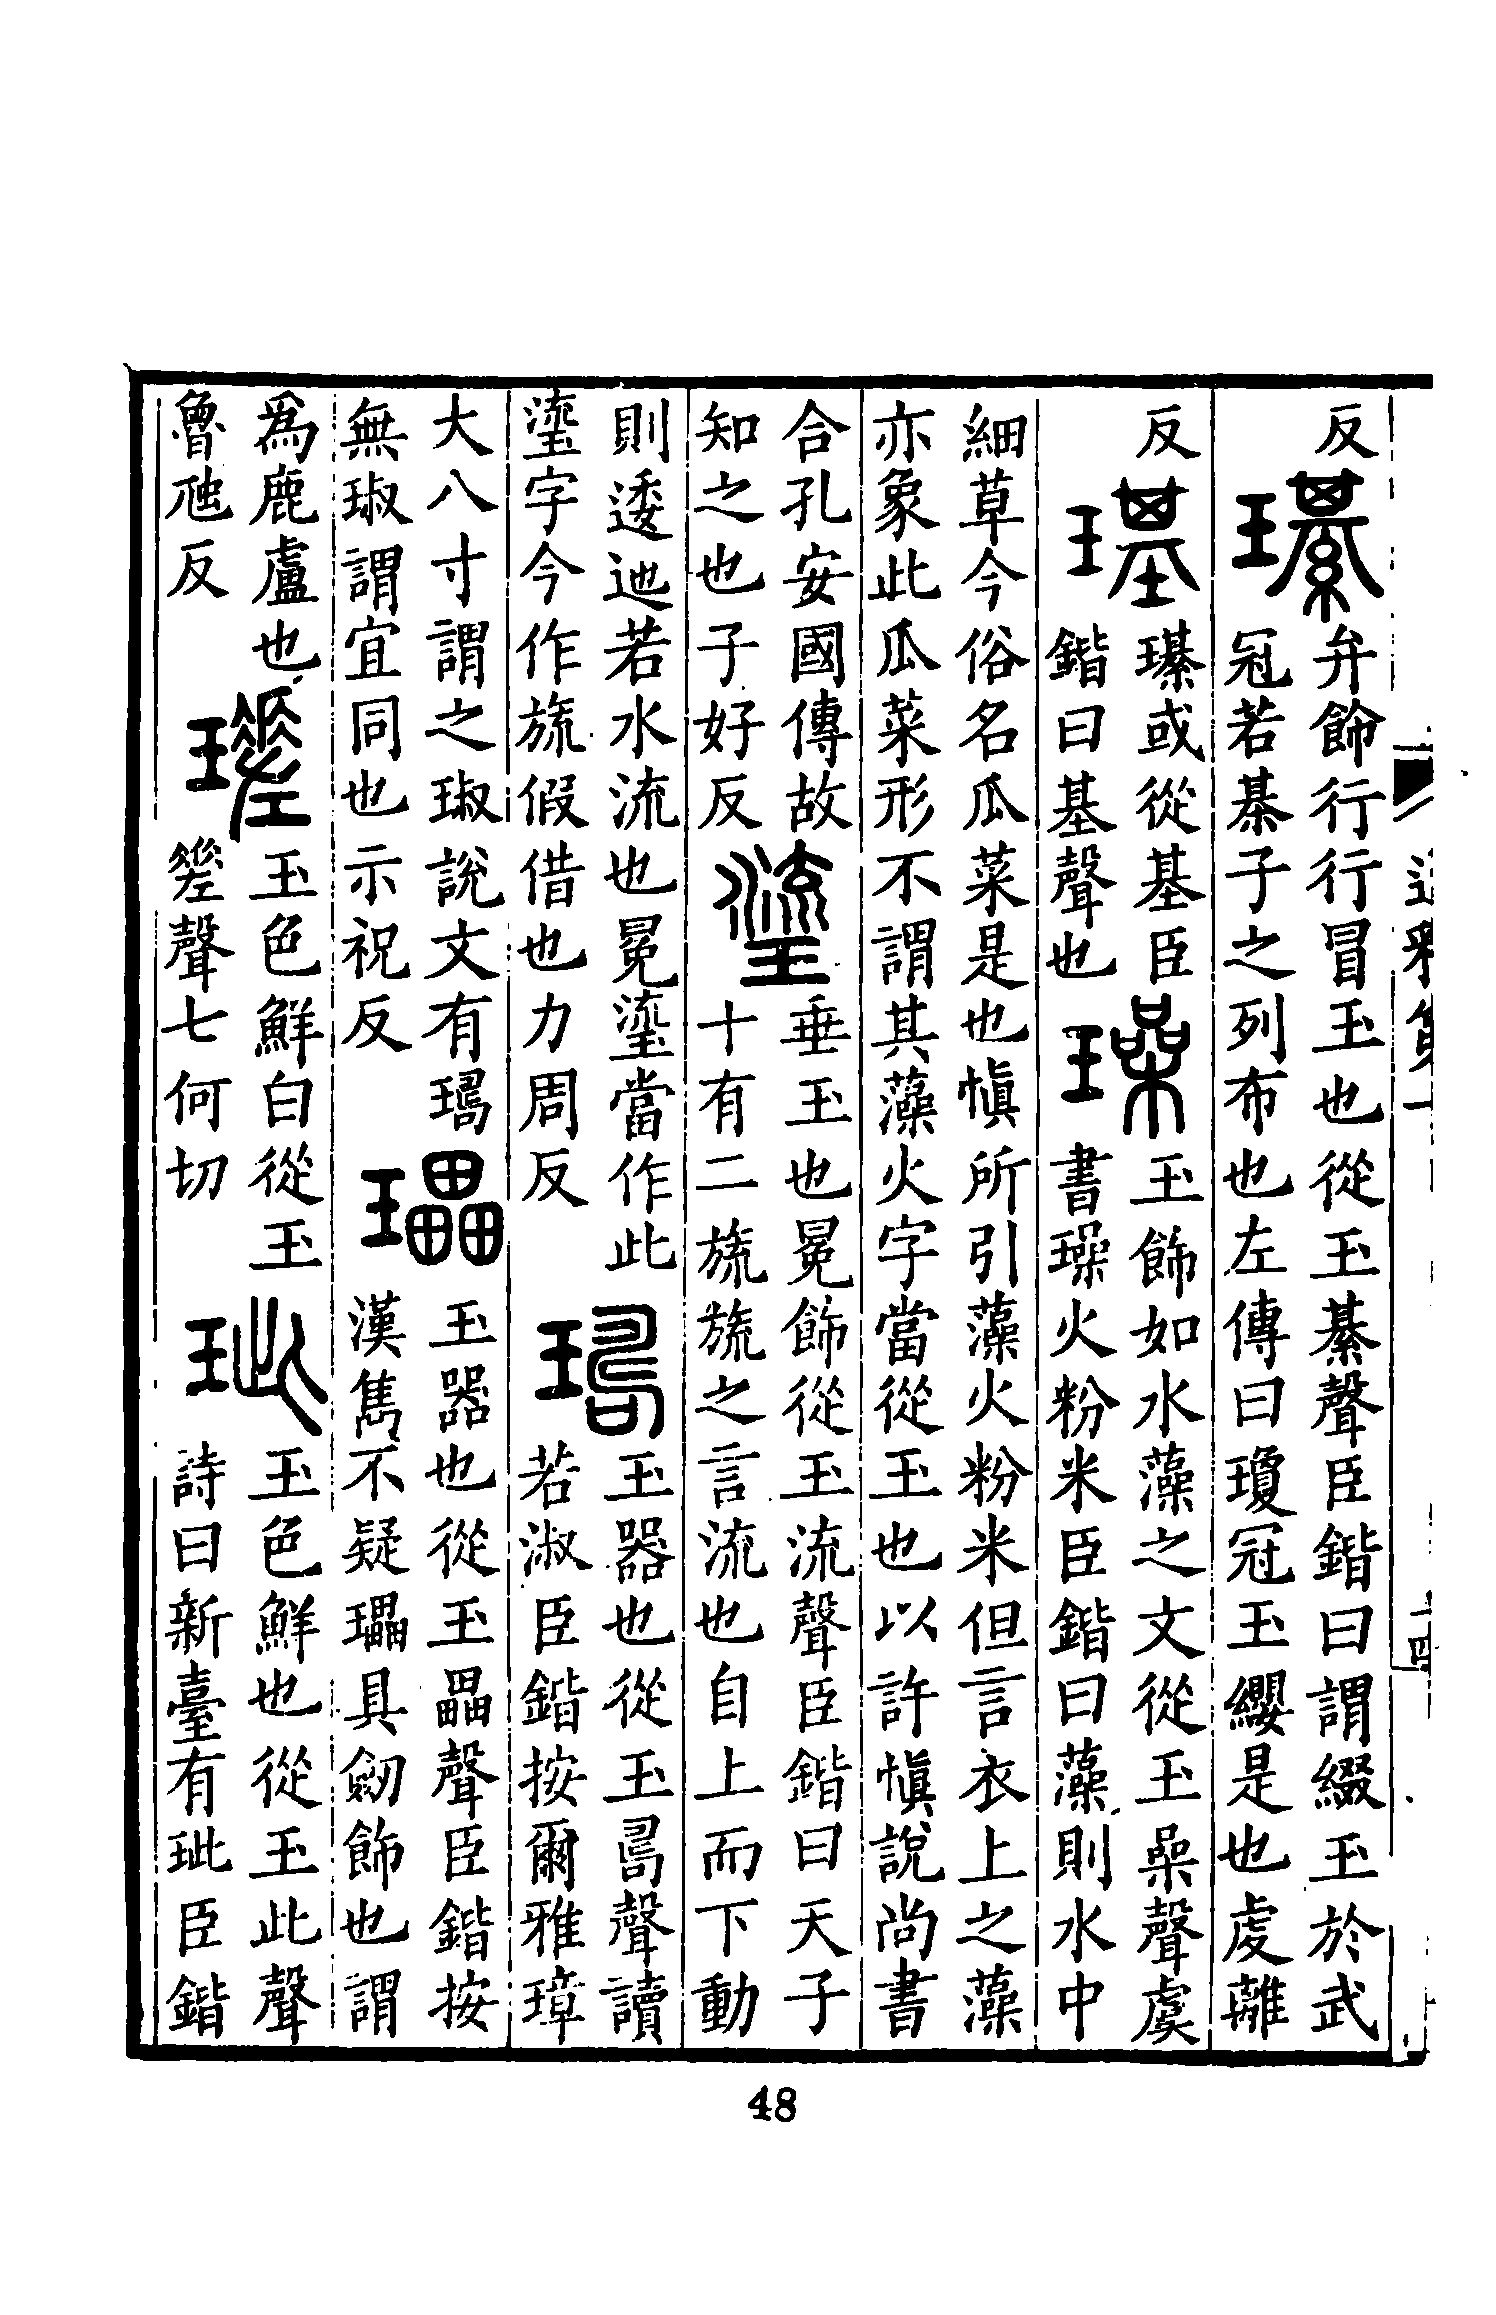 反
瓂
弁飾行行冒玉也從玉綦聲臣鍇曰謂綴玉於武
冠若棊子之列布也左傳曰瓊冠玉纓是也處離
反
璂
瓂或從基臣
鍇曰基聲也
璪
玉飾如水藻之文從玉喿聲虞
書璪火粉米臣鍇曰藻則水中
細草今俗名瓜菜是也愼所引藻火粉米但言衣上之藻
亦象此瓜菜形不謂其藻火字當從玉也以許愼說尚書
合孔安國傳故
知之也子好反
瑬
垂玉也冕飾從玉流聲臣鍇曰天子
十有二旒旒之言流也自上而下動
則逶迆若水流也冕瑬當作此
瑬字今作旒假借也力周反
玉器也從玉𠷎聲讀
若淑臣鍇按爾雅璋
大八寸謂之琡說文有
無琡謂宜同也示祝反
瓃
玉器也從玉畾聲臣鍇按
漢雋不疑瓃具劒飾也謂
爲鹿盧也
魯虺反
瑳
玉色鮮白從玉
䇫聲七何切
玼
玉色鮮也從玉此聲
詩曰新臺有玼臣鍇
48